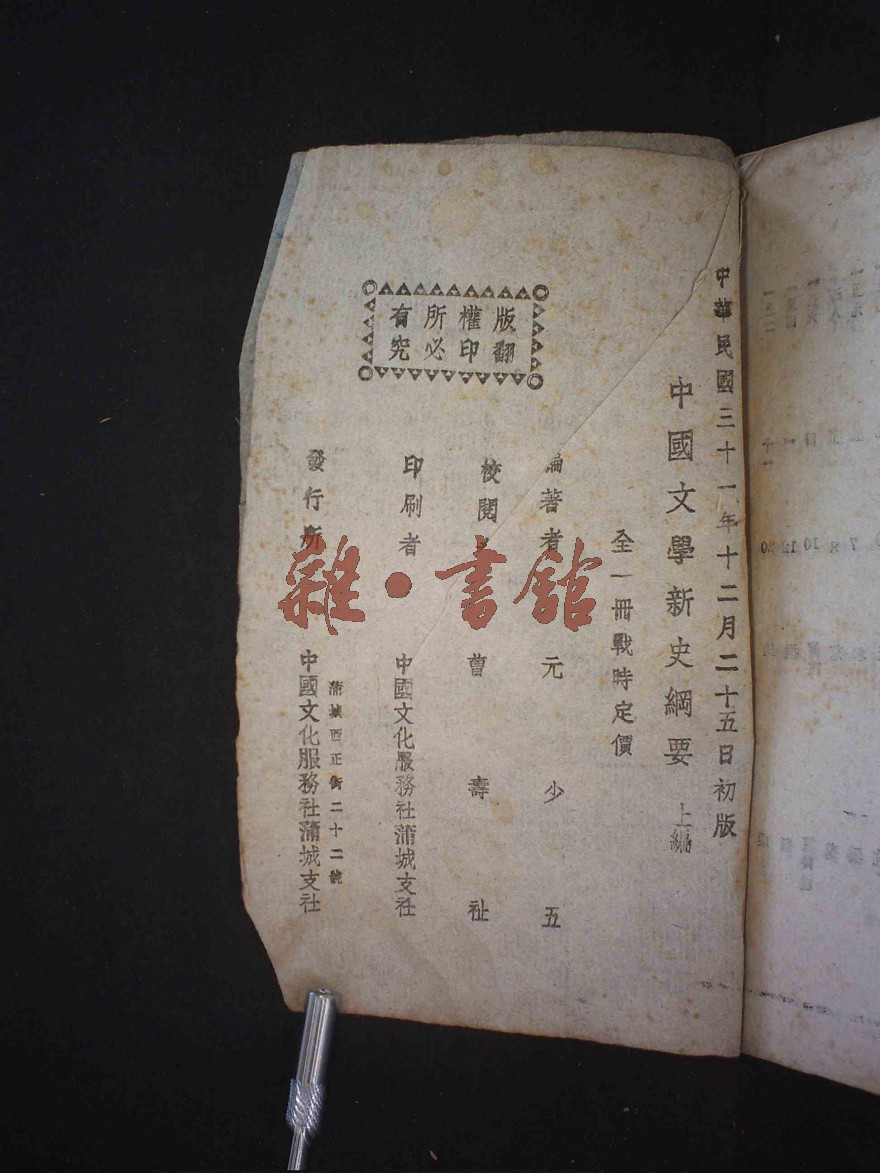 中華民國三十一年十二月二十五日初版
中國文學新史綱要 上編
全一冊戰時定價
編著者 元少五
校閱 曹壽祉
印刷者 中國文化服務社蒲城支社
蒲城西正街二十二號
發行所 中國文化服務社蒲城支社
版權所有
翻印必究
雜·書館
7 8 10 12 20